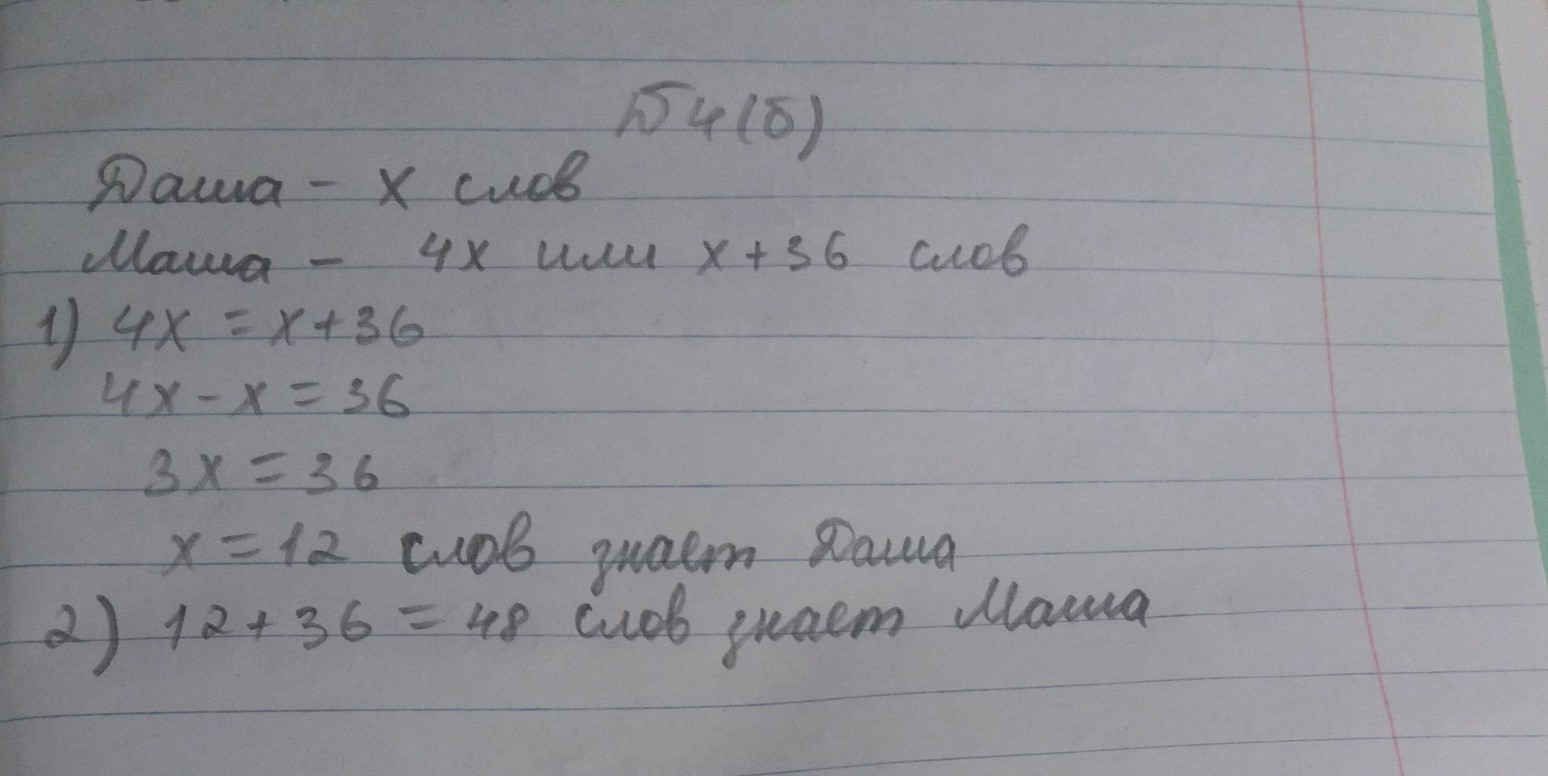 № 4 (б)
Даша - x слов
Маша - 4x или x + 36 слов
1) 4x = x + 36
4x - x = 36
3x = 36
x = 12 слов знает Даша
2) 12 + 36 = 48 слов знает Маша